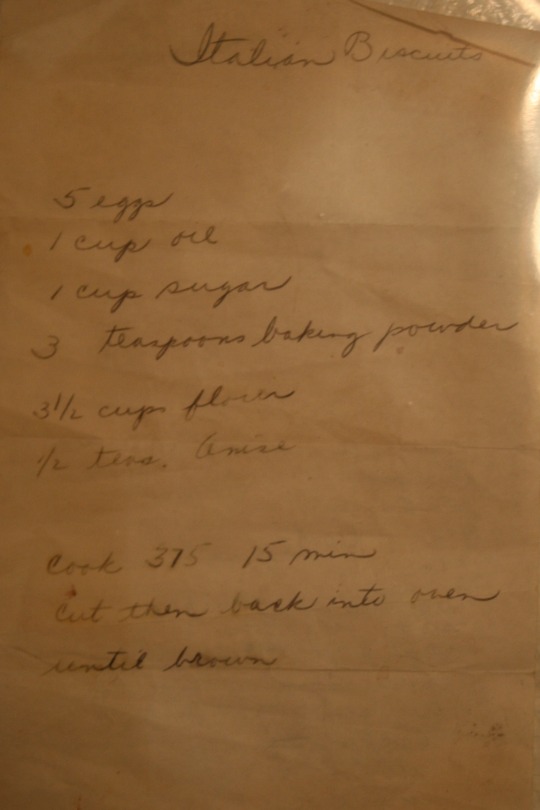 Italian Biscuits
5 eggs
1 cup oil
1 cup sugar
3 teaspoons baking powder
3 1/2 cups flour
1/2 teas. Anise
Cook 375 15 min
Cut then back into oven
until brown